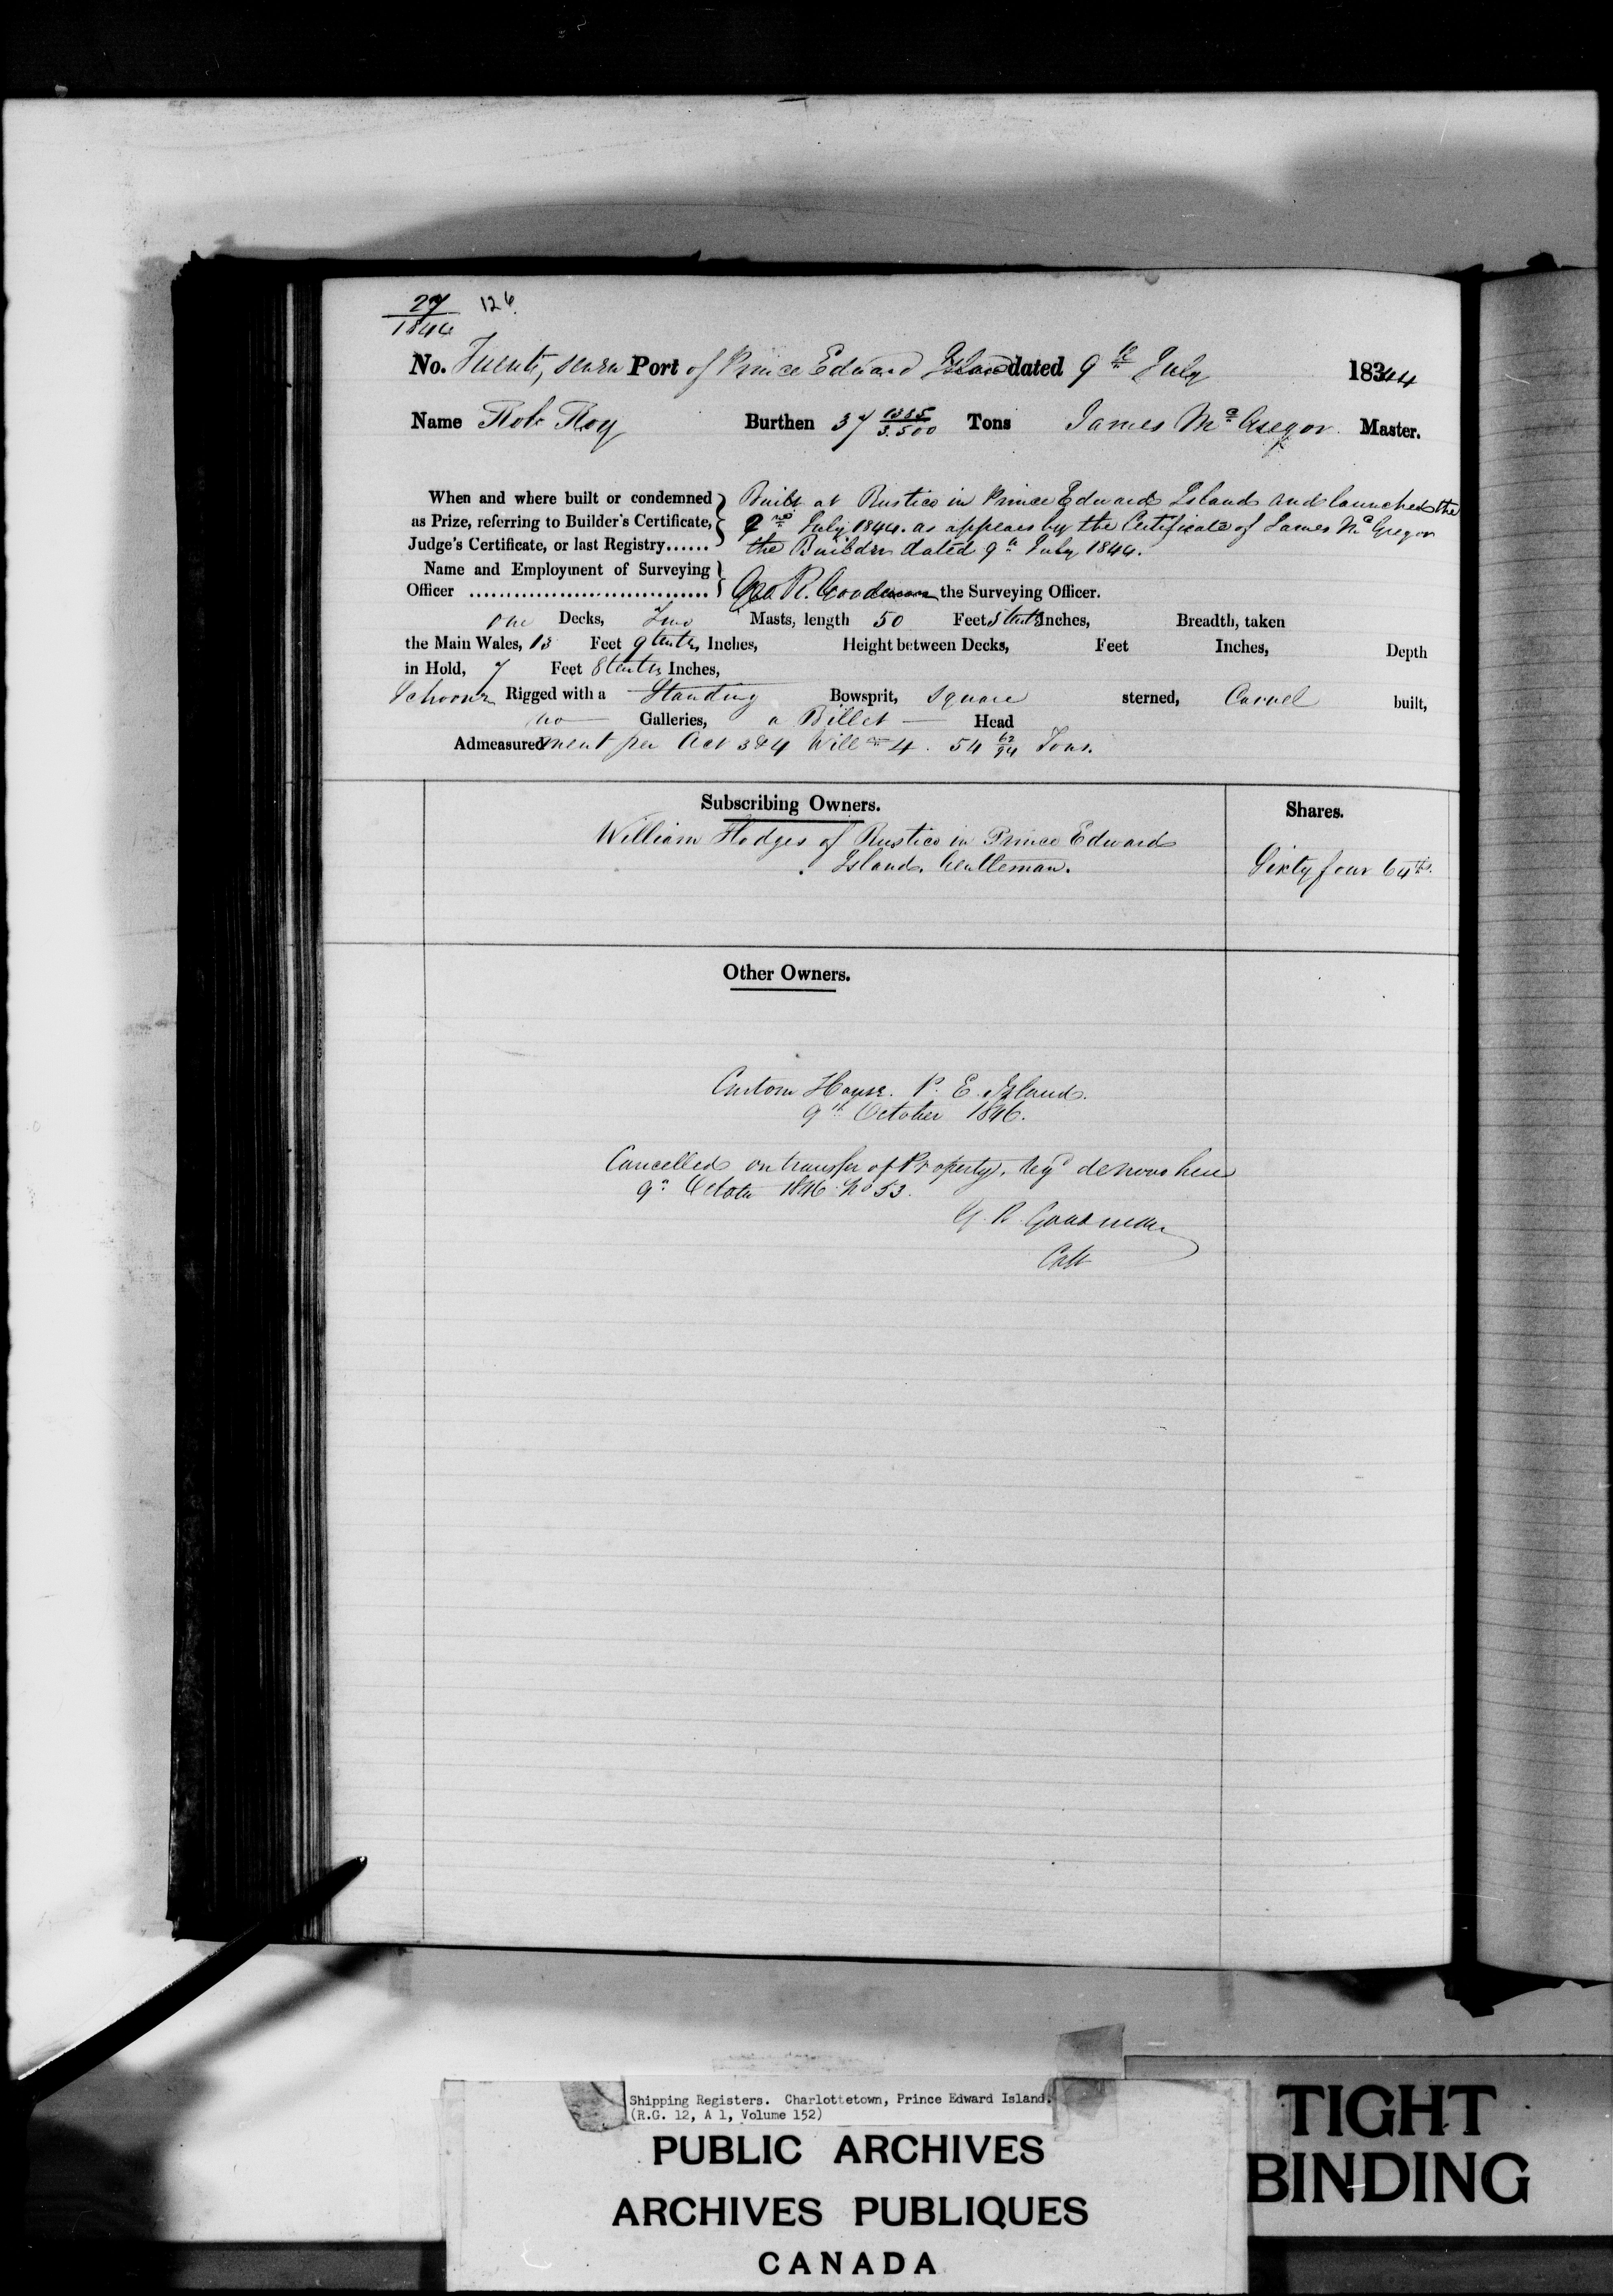 27 126
1844
No. Twenty seven Port of Prince Edward Island dated 9th July 18344
Name Rob Roy Burthen 37 1385/3.500 Tons James McGregor Master.
When and where built or condemned Built at Rustico in Prince Edward Island and launched the
as Prize, referring to Builder's Certificate, 2nd July 1844. as appears by the Certificate of James McGregor
Judge's Certificate, or last Registry...... the Builder dated 9th July 1844.
Name and Employment of Surveying
Officer ................................ Geo. R. Goodman the Surveying Officer.
one Decks, Two Masts, length 50 Feet tenths Inches, Breadth, taken
the Main Wales, 13 Feet 9 tenths Inches, Height between Decks, Feet Inches, Depth
in Hold, 7 Feet 8 tenths Inches,
Schooner Rigged with a Standing Bowsprit, Square sterned, Carvel built,
no Galleries, a Billet Head
Admeasurement per Act 3&4 Will m 4. 54 62/94 Tons.
Subscribing Owners. Shares.
William Hodges of Rustico in Prince Edward
Island. Gentleman. Sixty four 64ths.
Other Owners.
Custom House. P. E. Island.
9th October 1846.
Cancelled on transfer of Property. Regd de novo here
9th October 1846 No 53.
G. R. Goodman
Collr
Shipping Registers. Charlottetown, Prince Edward Island.
(R.G. 12, A 1, Volume 152)
PUBLIC ARCHIVES
ARCHIVES PUBLIQUES
CANADA
TIGHT
BINDING